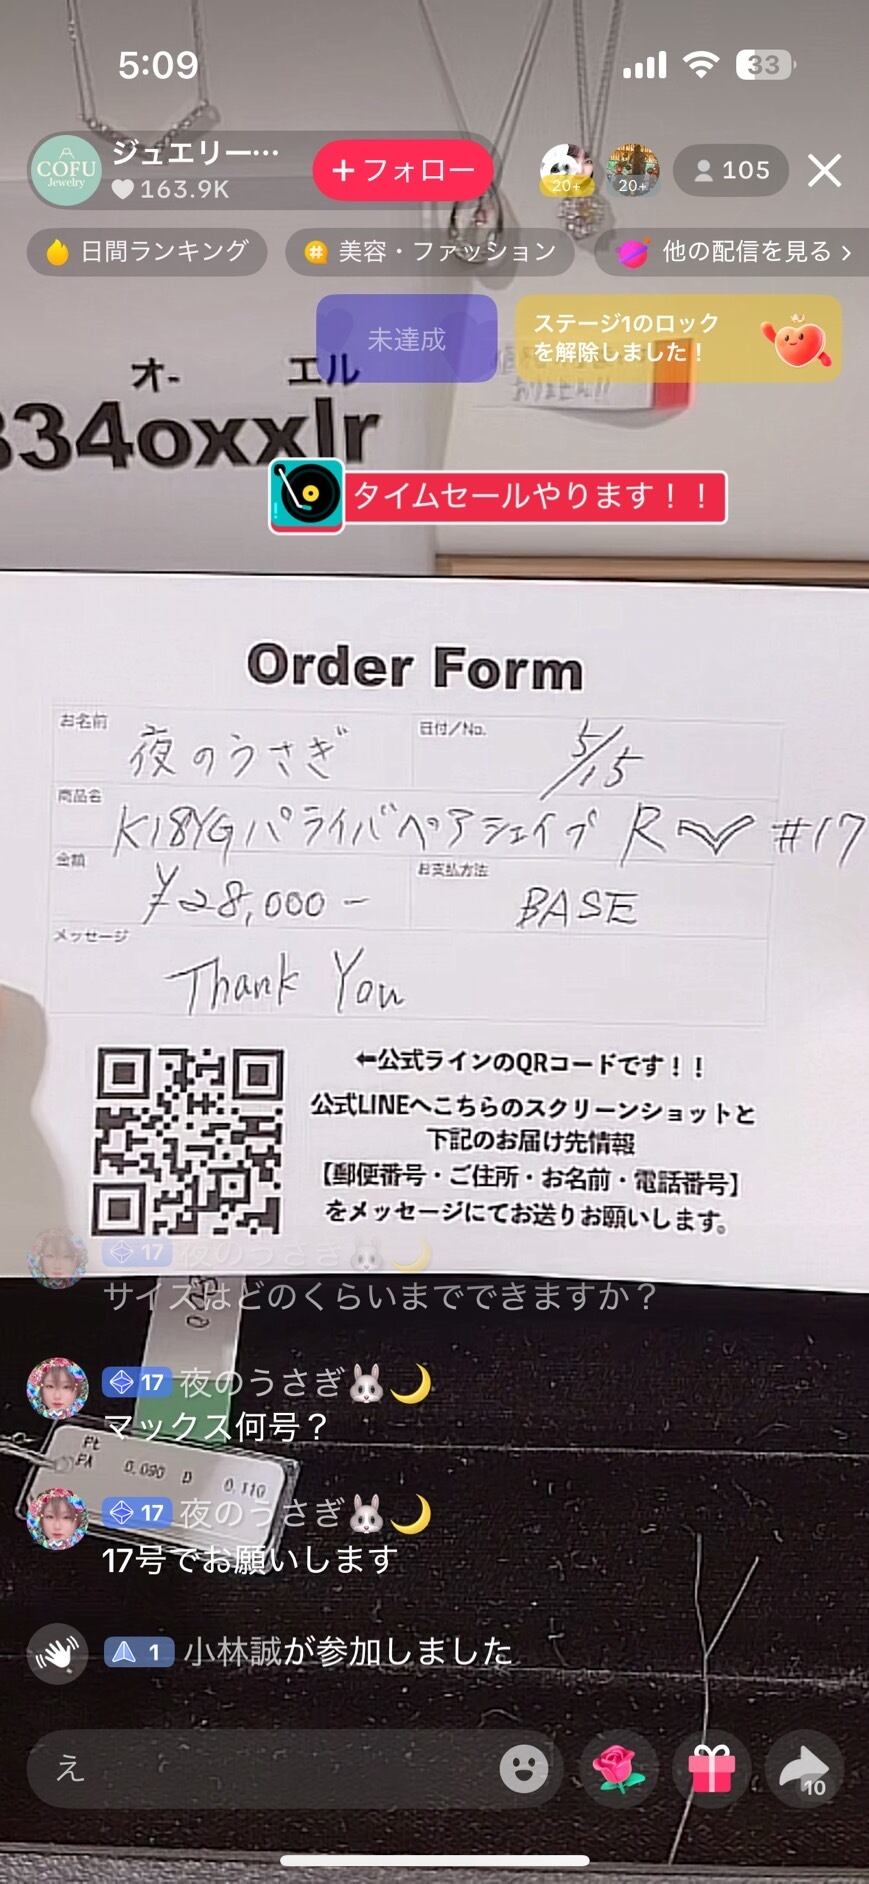 5:09
33
COFU
Jewelry
ジュエリー…
163.9K
+ フォロー
20+
20+
105
日間ランキング
美容・ファッション
他の配信を見る
未達成
ステージ1のロック
を解除しました!
オ- エル
334oxxlr
タイムセールやります!!
Order Form
お名前
夜のうさぎ
日付/No.
5/15
商品名
K18YGパライバペアシェイプ R #17
金額
¥28,000-
お支払方法
BASE
メッセージ
Thank You
⬅公式ラインのQRコードです!!
公式LINEへこちらのスクリーンショットと
下記のお届け先情報
【郵便番号・ご住所・お名前・電話番号】
をメッセージにてお送りお願いします。
17 夜のうさぎ🐰🌙
サイズはどのくらいまでできますか?
17 夜のうさぎ🐰🌙
マックス何号?
Pt
PA 0.090 D 0.110
17 夜のうさぎ🐰🌙
17号でお願いします
1 小林誠が参加しました
え
10